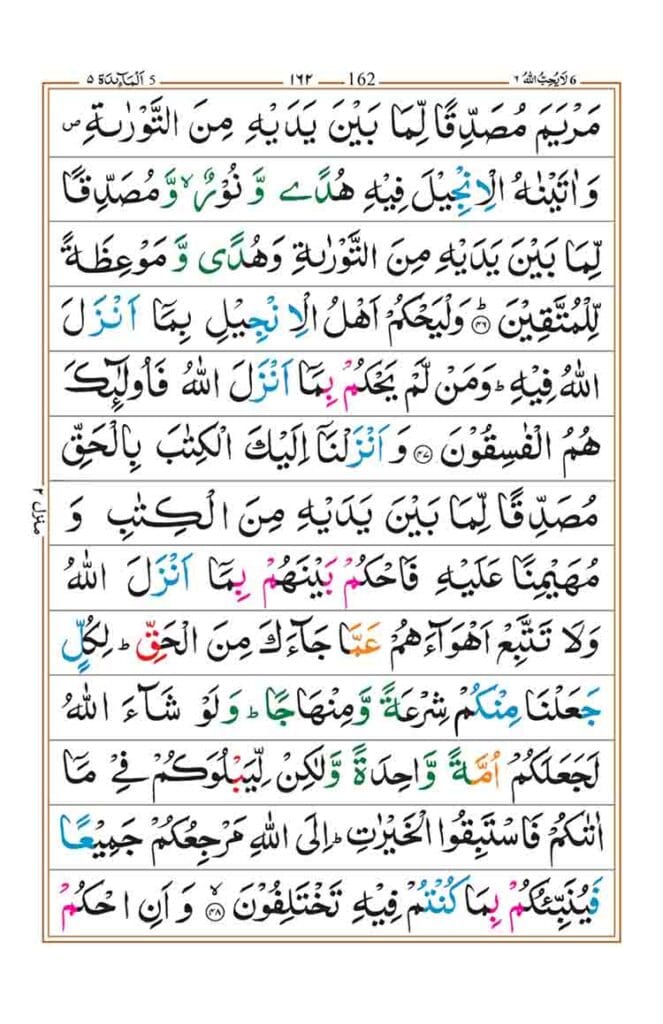 اَلْمَآئِدَة ٥ 5 ١٦٢ 162 لَا يُحِبُّ اللهُ ٦ 6
مَرْيَمَ مُصَدِّقًا لِّمَا بَيْنَ يَدَيْهِ مِنَ التَّوْرٰىةِ ۪
وَاٰتَيْنٰهُ الْاِنْجِيْلَ فِيْهِ هُدًى وَّ نُوْرٌ ۙ وَّ مُصَدِّقًا
لِّمَا بَيْنَ يَدَيْهِ مِنَ التَّوْرٰىةِ وَهُدًى وَّ مَوْعِظَةً
لِّلْمُتَّقِيْنَ ؕ ﴿۴۶﴾ وَلْيَحْكُمْ اَهْلُ الْاِنْجِيْلِ بِمَاۤ اَنْزَلَ
اللهُ فِيْهِ ؕ وَمَنْ لَّمْ يَحْكُمْ بِمَاۤ اَنْزَلَ اللهُ فَاُولٰٓئِكَ
هُمُ الْفٰسِقُوْنَ ﴿۴۷﴾ وَ اَنْزَلْنَاۤ اِلَيْكَ الْكِتٰبَ بِالْحَقِّ
مُصَدِّقًا لِّمَا بَيْنَ يَدَيْهِ مِنَ الْكِتٰبِ وَ
مُهَيْمِنًا عَلَيْهِ فَاحْكُمْ بَيْنَهُمْ بِمَاۤ اَنْزَلَ اللهُ
وَلَا تَتَّبِعْ اَهْوَآءَهُمْ عَمَّا جَآءَكَ مِنَ الْحَقِّ ؕ لِكُلٍّ
جَعَلْنَا مِنْكُمْ شِرْعَةً وَّمِنْهَاجًا ؕ وَلَوْ شَآءَ اللهُ
لَجَعَلَكُمْ اُمَّةً وَّاحِدَةً وَّلٰكِنْ لِّيَبْلُوَكُمْ فِيْ مَاۤ
اٰتٰىكُمْ فَاسْتَبِقُوا الْخَيْرٰتِ ؕ اِلَى اللهِ مَرْجِعُكُمْ جَمِيْعًا
فَيُنَبِّئُكُمْ بِمَا كُنْتُمْ فِيْهِ تَخْتَلِفُوْنَ ۙ ﴿۴۸﴾ وَ اَنِ احْكُمْ
منزل ٢